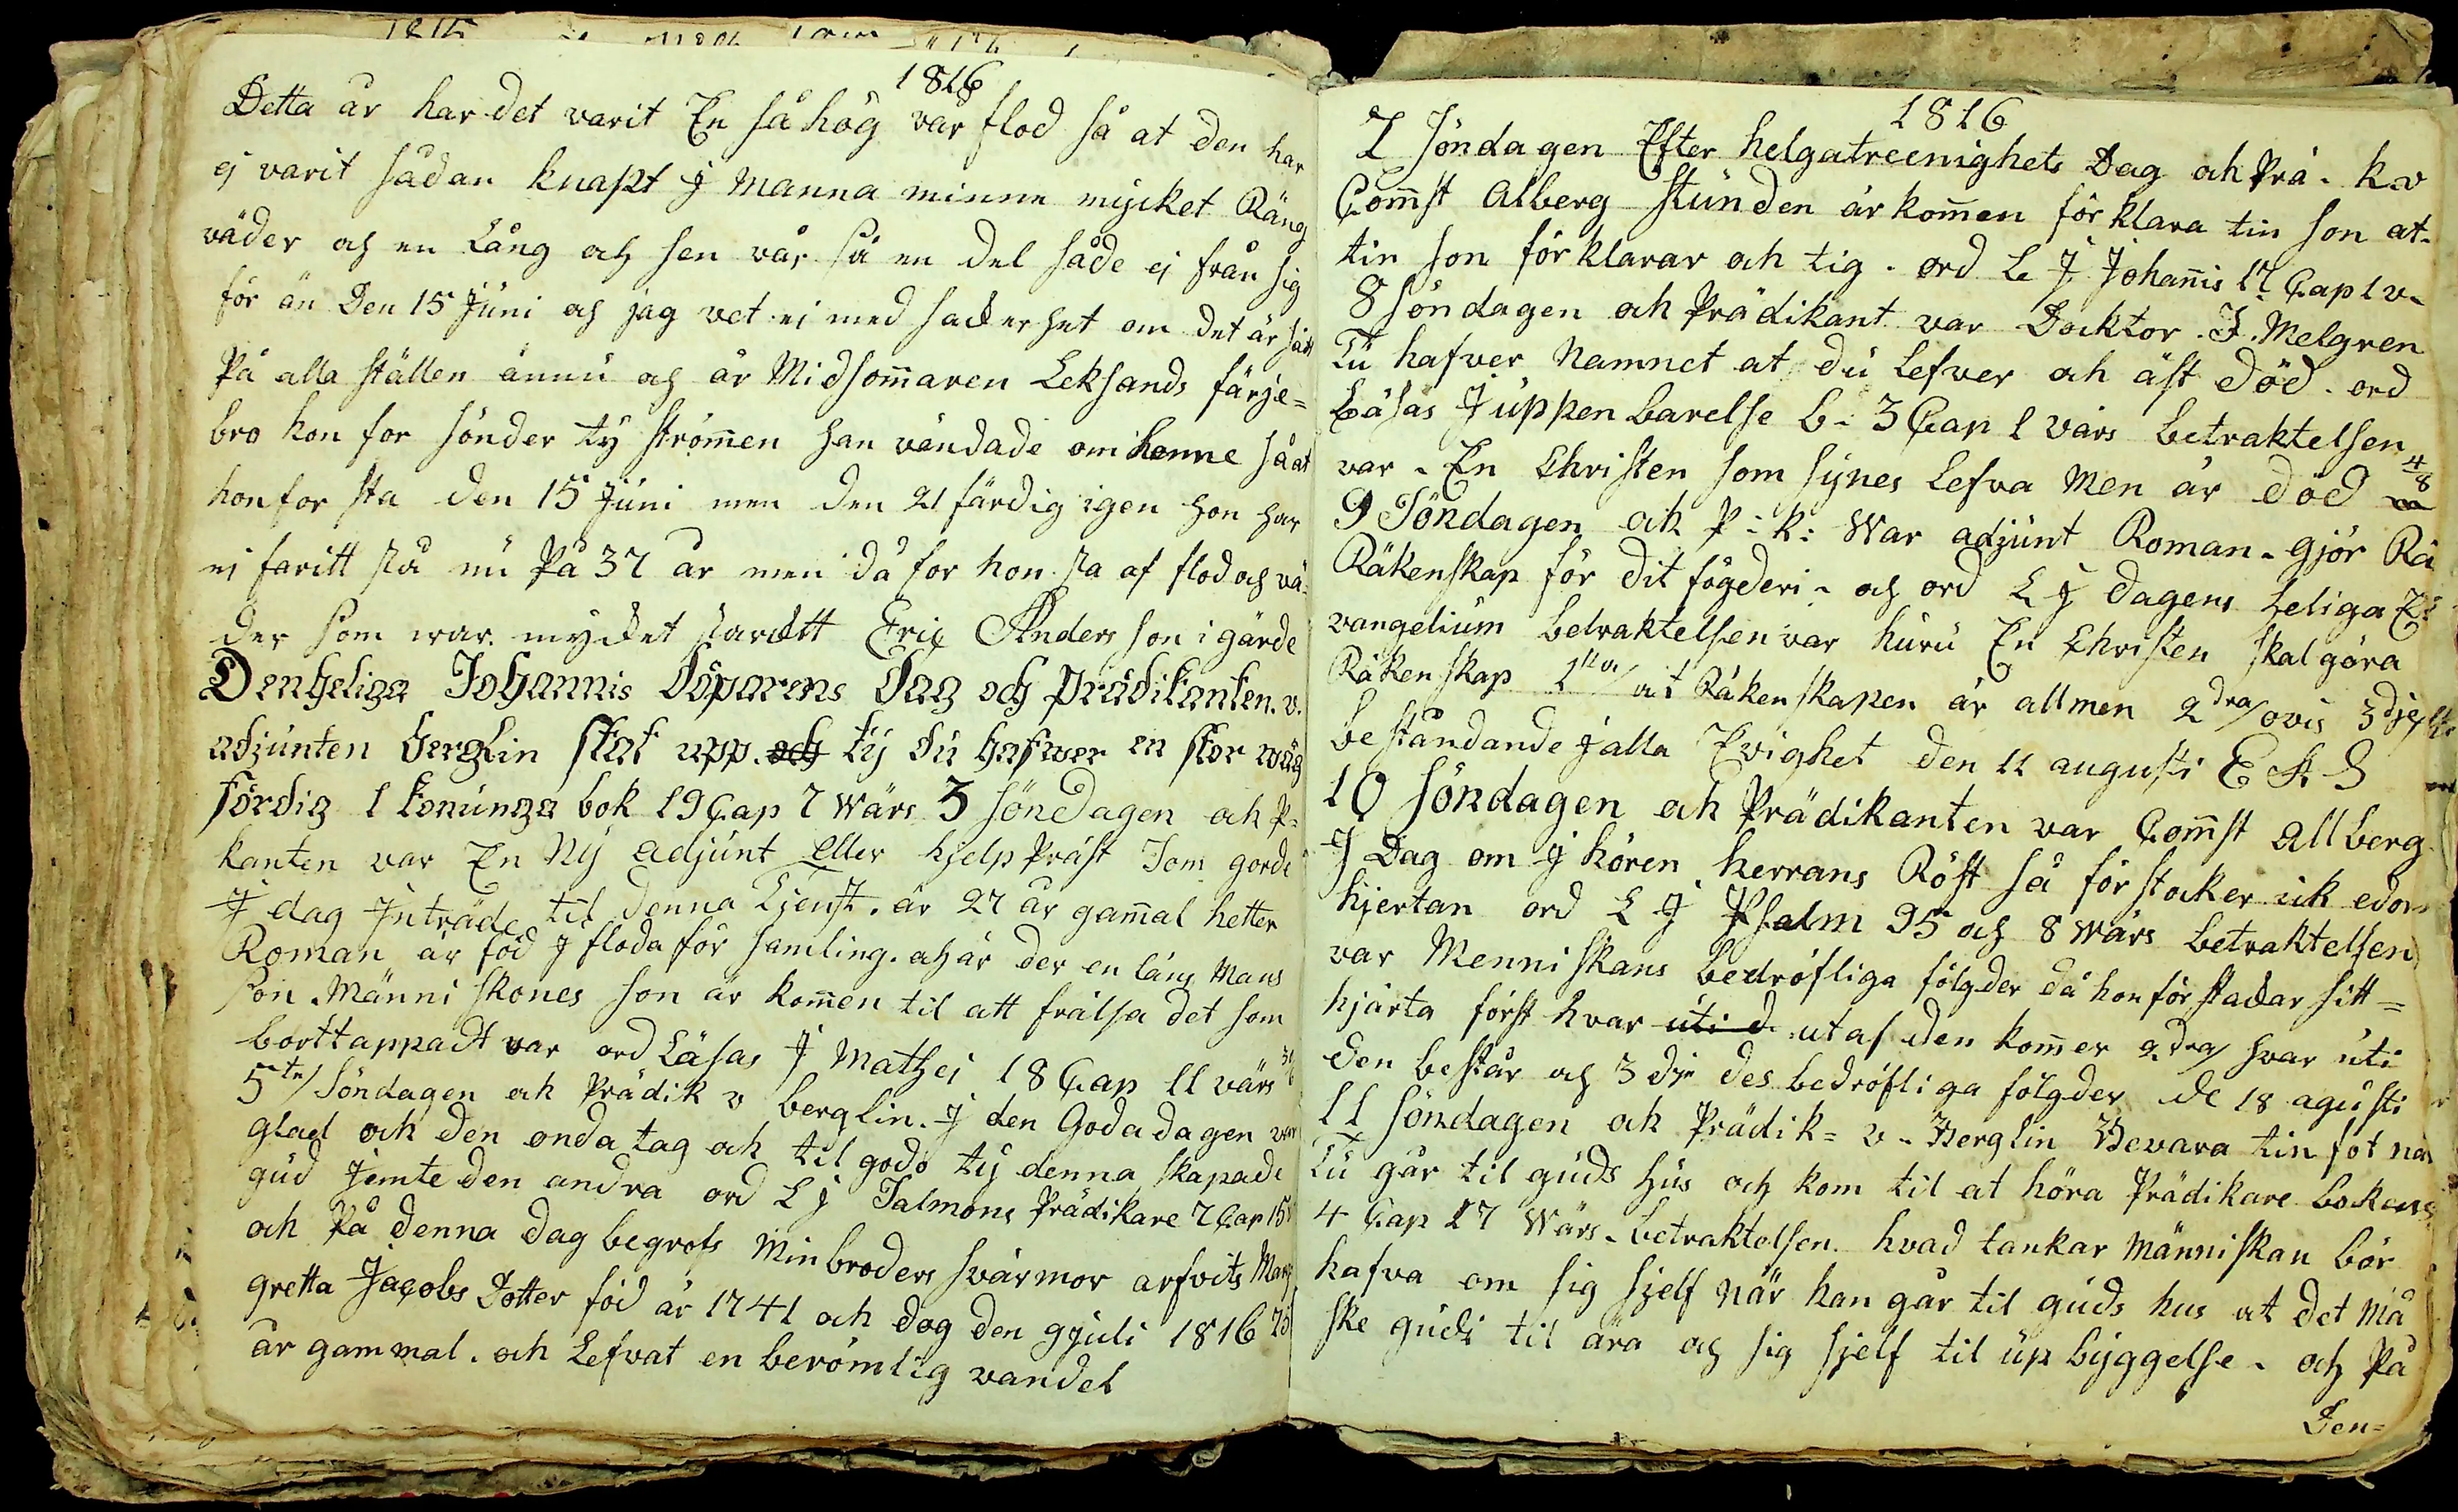 1816
Detta år har det varit En så hög vår flod så at den har
ej varit sådan knapt J manna minne mycket Räng
väder och en Lång och sen vår så en del såde ej från sig
för än Den 15 Juni och jag vet ei med sackerhet om det är sått
På alla ställen ännu och är Midsom̄aren Leksands färje=
bro hon for sönder ty ström̄en han vändade om henne så at
hon for sta den 15 Juni men den 21 färdig igen hon har
ej faritt sta nu På 37 år men då for hon sta af flod och vä-
der som war mycket starcktt Eric Anders son i gärde
Den heliga Johannis döparens dag och prädikanten. v.
adjunten berglin stat upp. ty du hafwer en stor wäg
fördig 1 konunga bok 19 Cap 7 wärs 3 söndagen ock P=
kanten var En Ny adjunt eller hjelp Präst Som gorde
J dag Jnträde til denna Tjenst. är 27 år gam̄al hetter
Roman är föd J floda för samling. och är der en läns Mans
son. Männi skones son är kom̄en til att frälsa det som
borttappadt var ord Läsas J Mathej 18 Cap 11 värs
5te/ Söndagen ock Prädik v berglin. J den Goda dagen var
glad ock den onda tag ock til godo ty denna skapade
gud Jemte den andra ord L J Salmons Prädikare 7 Cap 15 v
ock På denna dag begrofs Min broders svärmor arfvits Mar
gretta Jacobs Dotter föd år 1741 ock dog den 9 juli 1816 75
år gammal. ock Lefvat en berömlig vandel
1816
7 söndagen Efter helgatreenighets Dag ock Prä. k. v
Com̄st Alberg stunden är kom̄en för klara tin son at-
tin son för klarar ock tig. ord L J Johan̄is 17 Cap 1 v.
8 söndagen ock Prädikant var Docktor. J. Melgren
Tu hafver Namnet at du Lefver ock äst död. ord
Läsas J uppen barelse b. 3 Cap 1 värs betraktelsen
var. En Christen som synes Lefva Men är död 4/8
9 Söndagen ock P: k: War adjunt Roman. gjör Rä
Räkenskap för dit fögderi. och ord L J dagens heliga E
vangelium betraktelsen var huru En Christen skal göra
Räken skap 1sta/ at Räken skapen är allmen 2dra/ ovis 3dje
be ståndande J alla Evighet den 11 augusti E A S
10 söndagen ock Prädikanten var Com̄st Allberg
J Dag om J hören herrans Röst så för stocker ick edor
hjertan ord L J Psalm 95 och 8 wärs betraktelsen
var Menni skans bedröfliga fölgder då hon för stackar sitt=
hjärta först hvar uti d utaf den kom̄er 2dra/ hvar uti
den be står och 3 dje des bedröfli ga fölgder de 18 agusti
11 söndagen ock Prädik= v. Berglin Bevara tin fot när
Tu går til guds hus och kom til at höra Prädikare bockens
4 Cap 17 wärs. betraktelsen. hvad tankar Männi skan bör
hafva om sig sjelf när han går til guds hus at det må
ske gudi til ära och sig sjelf til up byggelse. och På
Den=